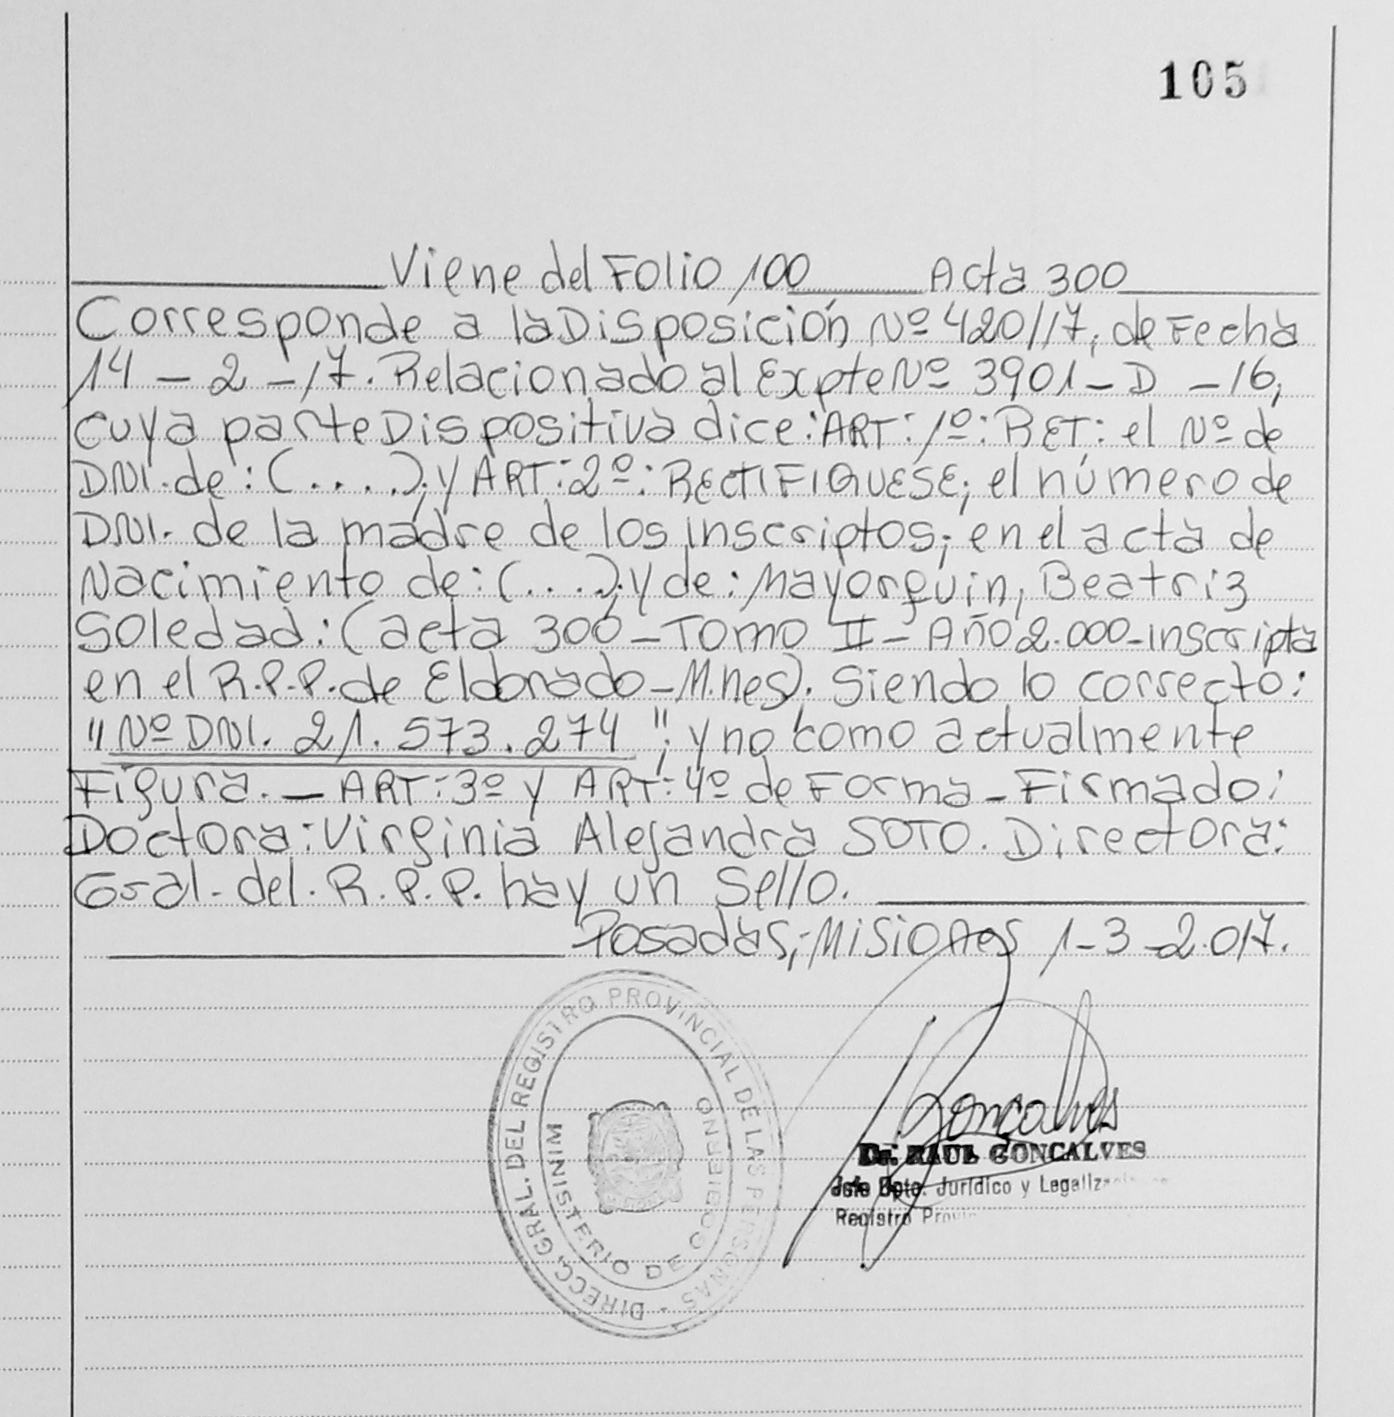 105
Viene del Folio 100 Acta 300
Corresponde a la Disposición Nº 420/17, de Fecha
14 - 2 - 17. Relacionado al Expte Nº 3901 - D - 16,
cuya parte Dispositiva dice: ART: 1º: RET: el Nº de
DNI. de: (....); y ART: 2º: RECTIFIQUESE; el número de
DNI. de la madre de los inscriptos; en el acta de
Nacimiento de: (....); y de: Mayorquin, Beatriz
Soledad: (acta 300 - Tomo II - Año 2.000 - inscripta
en el R.P.P. de Eldorado - M.nes). Siendo lo correcto:
"Nº DNI. 21.573.274"; y no como actualmente
Figura. - ART: 3º y ART: 4º de Forma - Firmado:
Doctora: Virginia Alejandra SOTO. Directora:
Gral. del. R.P.P. hay un Sello.
Posadas; Misiones 1 - 3 - 2.017.
DIRECC. GRAL. DEL REGISTRO PROVINCIAL DE LAS PERSONAS -
MINISTERIO DE GOBIERNO
Goncalves
Dr. RAUL GONCALVES
Jefe Dpto. Jurídico y
Registro